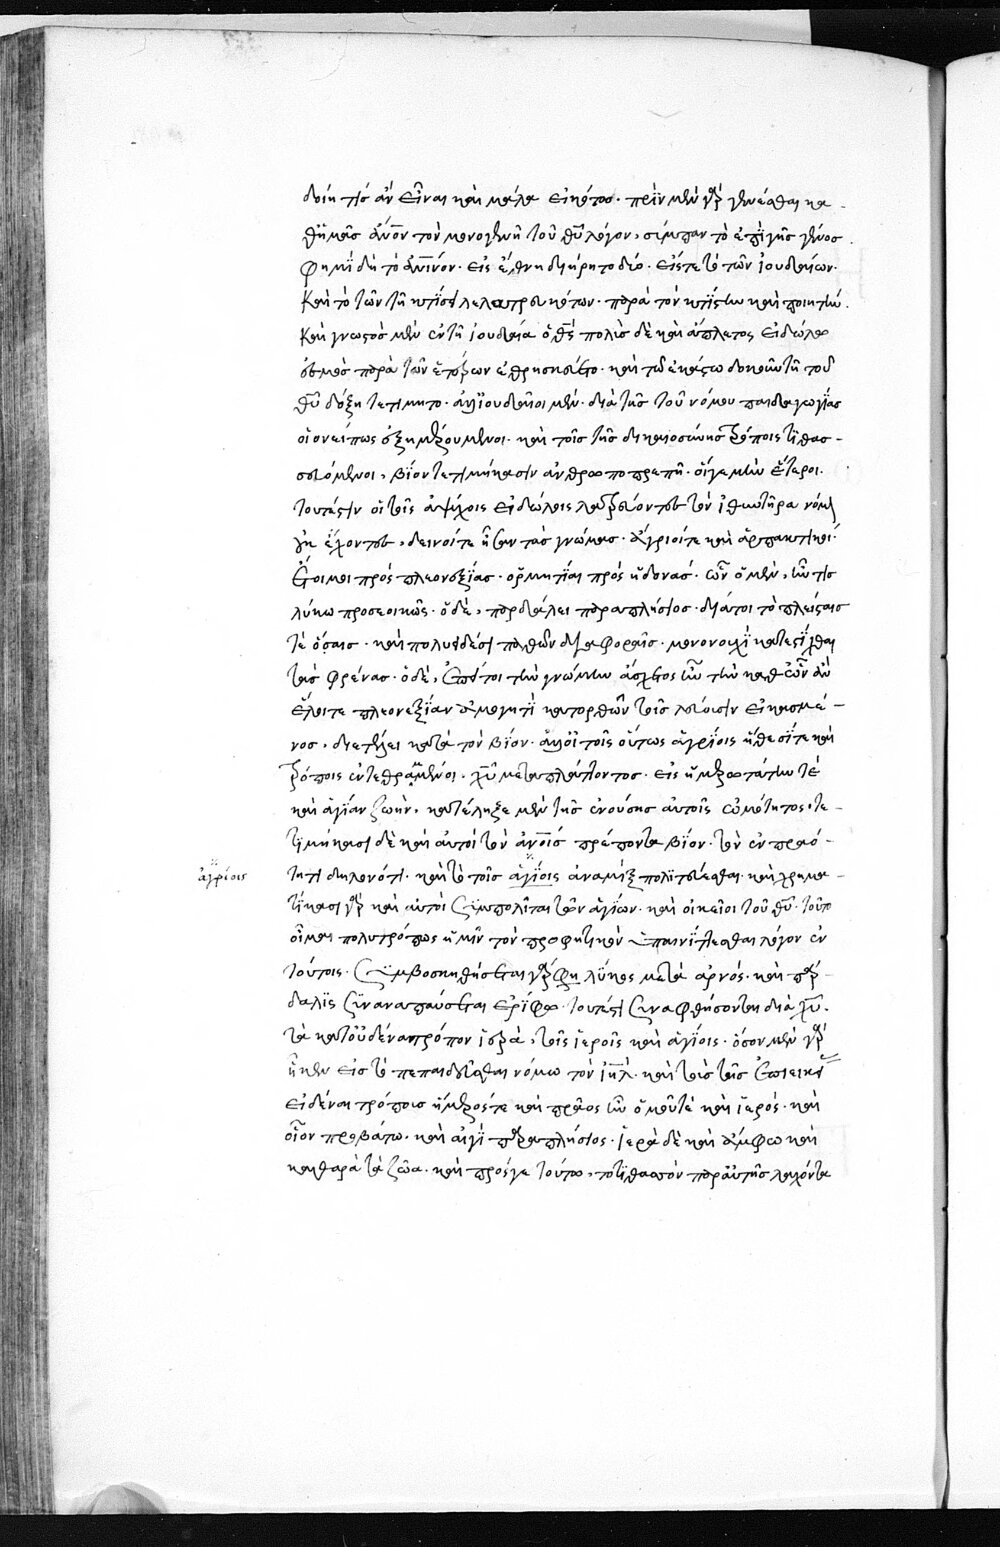 δοίη τίς ἂν εἶναι καὶ μάλα εἰκότως· πρὶν μὲν γὰρ γενέσθαι κα-
θ᾽ ἡμᾶς ἄνον τὸν μονογενῆ τοῦ θῦ λόγον, σύμπαν τὸ ἐπὶ γῆς γένος.
φημὶ δὴ τὸ ἀνινον· εἰς ἔθνη διῄρητο δύο· εἴς τε τὸ τῶν ἰουδαίων·
καὶ τὸ τῶν τῇ κτίσει λελατρευκότων· παρὰ τὸν κτίστην καὶ ποιητήν.
καὶ γνωστὸς μὲν ἐν τῇ ἰουδαίᾳ ὁ θς πολὺς δὲ καὶ ἄπλετος εἰδώλων
ἑσμὸς παρὰ τῶν ἑτέρων ἐθρησκεύετο· καὶ τῷ ἑκάστῳ δοκοῦν τῇ τοῦ
θῦ δόξῃ τετίμητο· ἀλλ᾽ ἰουδαῖοι μὲν· διὰ τῆς τοῦ νόμου παιδαγωγίας
οἱονεί πως ἐξημερούμενοι· καὶ τοῖς τῆς δικαιοσύνης τρόποις τιθασ-
σευόμενοι, βίον τετιμήκασιν ἀνθρωποπρεπῆ· οἵ γε μὴν ἕτεροι.
τουτέστιν οἱ τοῖς ἀψύχοις εἰδώλοις λατρεύοντες τὸν ἰθυντῆρα νόμον
οὐκ ἔχοντες, δεινοί τε ἦσαν τὰς γνώμας· ἄγριοί τε καὶ ἁρπακτικοί·
ἕτοιμοι πρὸς πλεονεξίας· ὁρμητίαι πρὸς ἡδονάς· ὧν ὁ μὲν, ἦν τις
λύκῳ προσεοικὼς· ὁ δὲ, παρδάλει παραπλήσιος· διά τοι τὸ πλείσταις
τὲ ὅσαις· καὶ πολυειδέσι παθῶν διαφοραῖς· μονονουχὶ κατεστίχθαι
τὰς φρένας· ὁ δὲ, ἐπεί τοι τὴν γνώμην ἄσχετος ἦν τὴν καθ᾽ ὧν ἂν
ἕλοιτο πλεονεξίαν ἀμογητὶ κατορθῶν τοῖς λέουσιν εἰκασμέ-
νος, διετέλει κατὰ τὸν βίον· ἀλλ᾽ οἱ τοῖς οὕτως ἀγρίοις ἤθεσί τε καὶ
τρόποις ἐντεθραμμένοι· χῦ μεταπλάττοντος· εἰς ἡμερωτάτην τὲ
καὶ ἁγίαν ζωὴν, κατέληξε μὲν τῆς ἐνούσης αὐτοῖς ὠμότητος, τε-
τιμήκασι δὲ καὶ αὐτοὶ τὸν ἀνοις πρέποντα βίον· τὸν ἐν πραό-
ἀγρίοις τητι δηλονότι· καὶ τὸ τοῖς ἁγίοις ἀναμὶξ πολιτεύεσθαι· καὶ χρημα-
τίκασι γὰρ καὶ αὐτοὶ συμπολῖται τῶν ἁγίων· καὶ οἰκεῖοι τοῦ θῦ· τοῦτο
οἶμαι πολυτρόπως ἡμῖν τὸν προφητικὸν ἐπαινίττεσθαι λόγον ἐν
τούτοις· συμβοσκηθήσεται γάρ φη λύκος μετὰ ἀρνός· καὶ πάρ-
δαλις συναναπαύσεται ἐρίφῳ· τουτέστι συναφθήσονται διὰ χῦ.
τὰ κατ᾽ οὐδένα τρόπον ἱερὰ, τοῖς ἱεροῖς καὶ ἁγίοις· ὅσον μὲν γὰρ
ἧκεν εἰς τὸ πεπαιδεῦσθαι νόμῳ τὸν ἰηλ· καὶ τοὺς τῆς ἐπιεικεί-
εἰδέναι τρόπους ἥμερός τε καὶ πρᾶος ἦν ὁμοῦ τὲ καὶ ἱερός· καὶ
οἷον προβάτῳ· καὶ αἰγὶ παραπλήσιος· ἱερὰ δὲ καὶ ἄμφω καὶ
καθαρὰ τὰ ζῶα· καὶ πρός γε τούτῳ, τὸ τιθασὸν παρ᾽ αὐτῆς λαχόντα